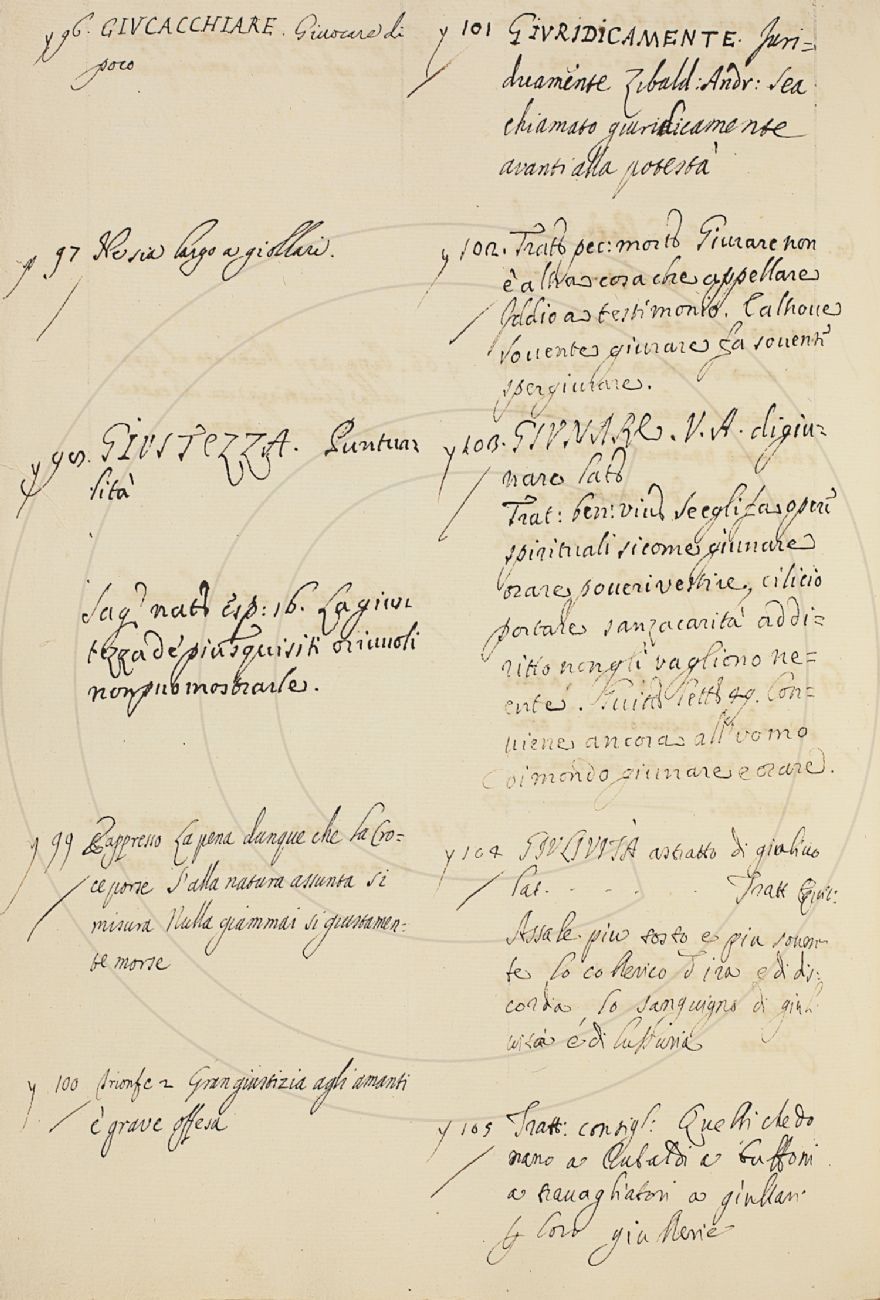 y 96. GIVCACCHIARE. Giuocare di
poco
y 97 Ne sia largo a giollari.
y 98. GIVSTEZZA. Puntua=
lità
Sag: nat: esp: 16. La gius=
tezza de più squisiti oriuoli
non può mostrarle.
y 99 Rappresso La pena dunque che la Cro=
ce porse S'alla natura assunta si
misura Nulla giammai si giustamen=
te morse
y 100 trionf e 2 Gran giustizia agli amanti
è grave offesa
y 101 GIVRIDICAMENTE. Juri=
Zibald: Andr: Sea
chiamato giuridicamente
avanti alla potestà
y 102. Tratt pec: mort Giurare non
è altra cosa che appellare
Iddio a testimonio. E altroue
souente giurare fa souente
spergiurare.
y 103. GIVNARE. V. A. digiu=
nare lat
Trat: ben: viu Se egli fa opere
spirituali sicome giunare
orare poueri vestire, cilicio
portare sanza carità addi=
ritto non gli vagliono ne=
ente. Guitt lett 49. Con=
uiene ancora all'vomo
di mondo giunare e orare.
y 104 GIVLIVITÀ astratto di giuliuo
lat. . . . . Tratt
Assale piu tosto e piu souen=
te lo collerico d'ira e di dis:
cordia, lo sanguigno di giul
uità é di lussuria
y 105 Tratt: consigl: Quelli che do
nano a Rubaldi a buffoni
a trauagliatori a giullari
loro giullerie